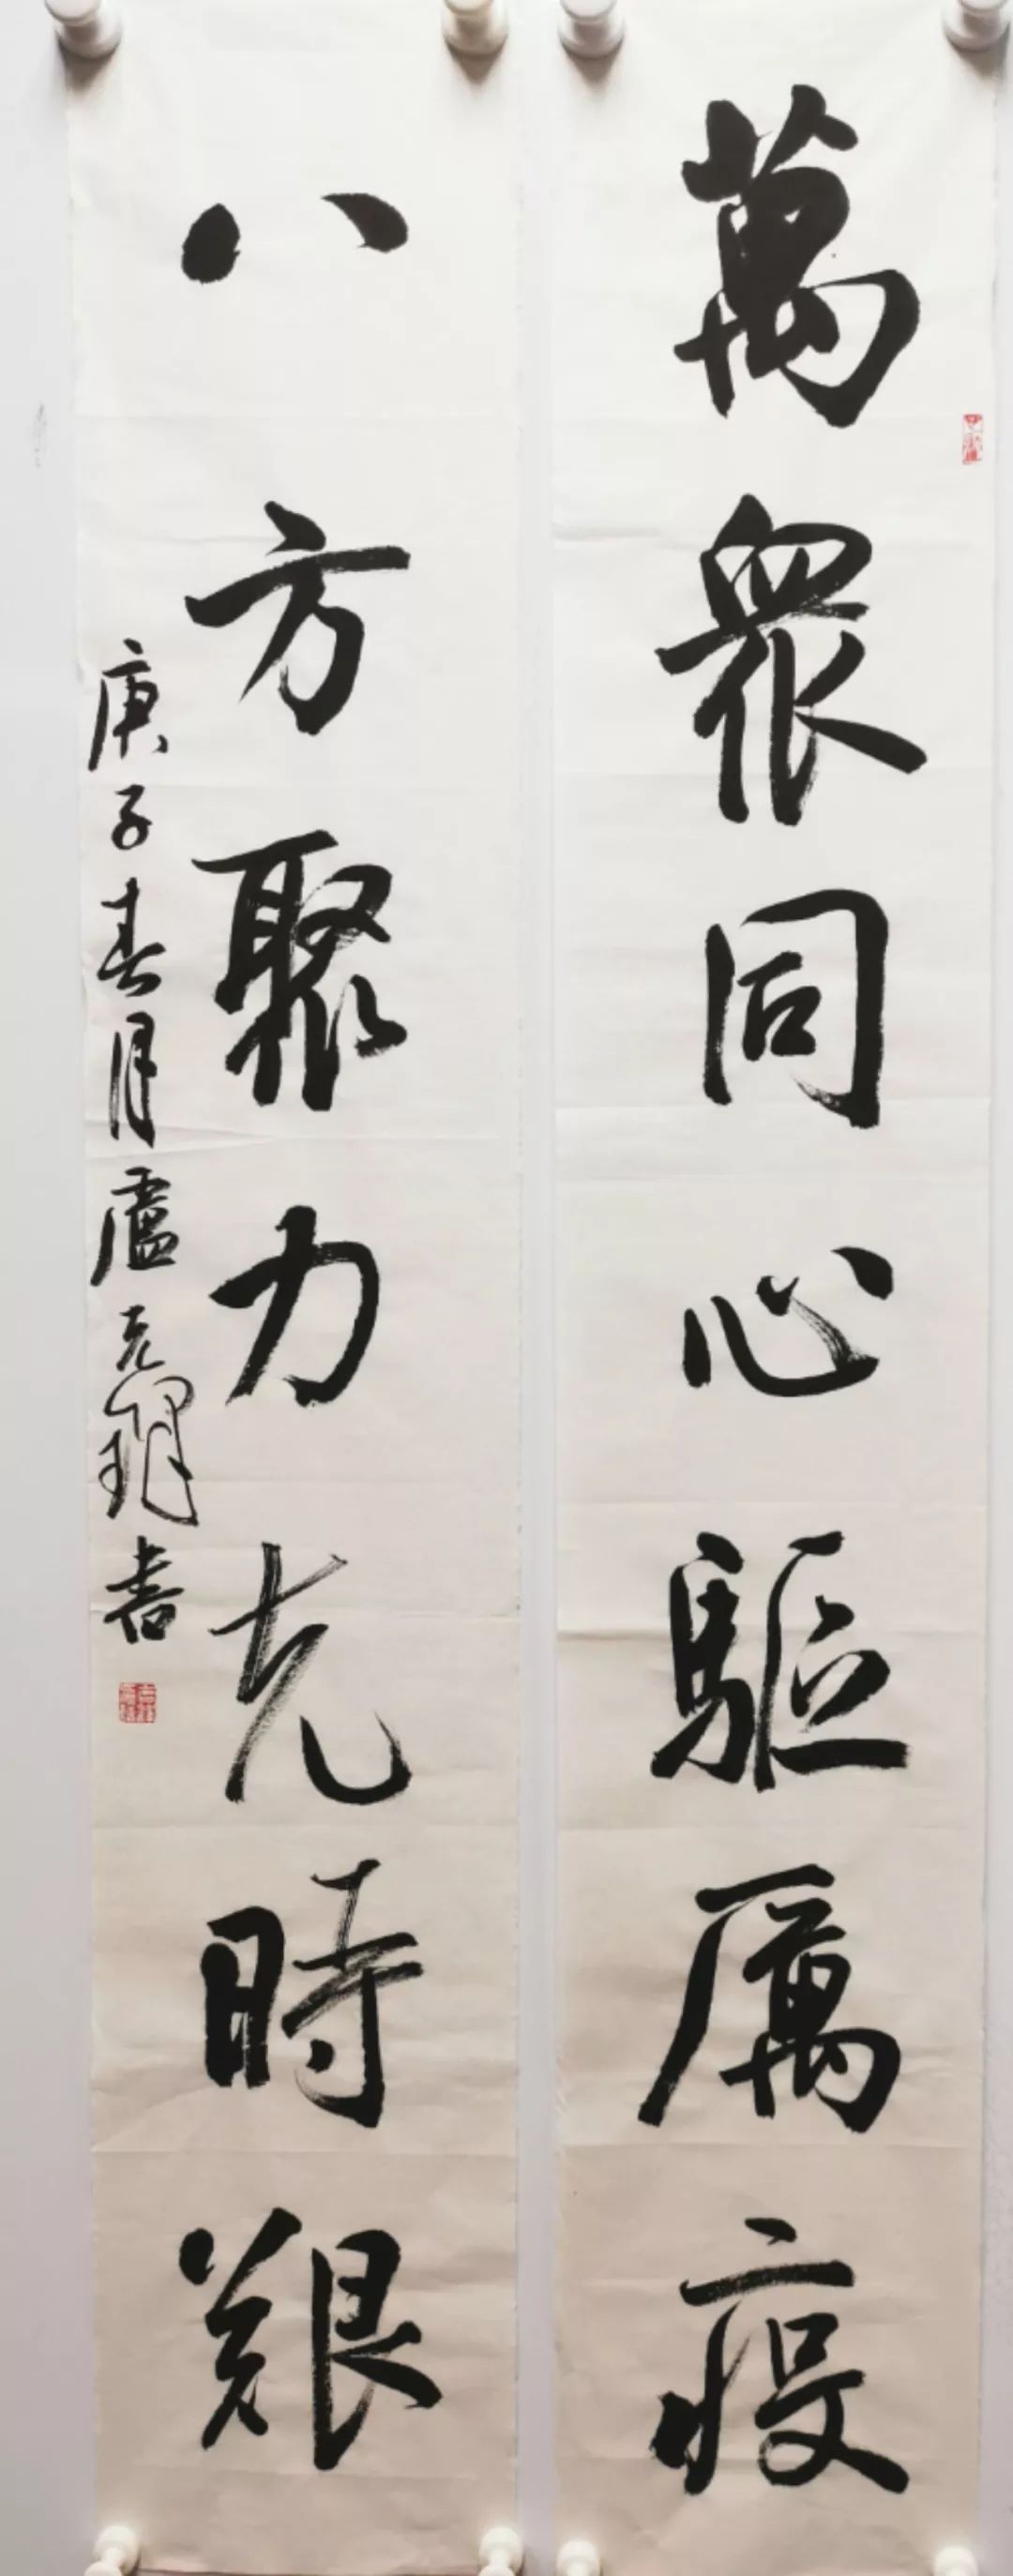 萬眾同心驅厲疫
八方聚力克時艱
庚子春月盧克照書